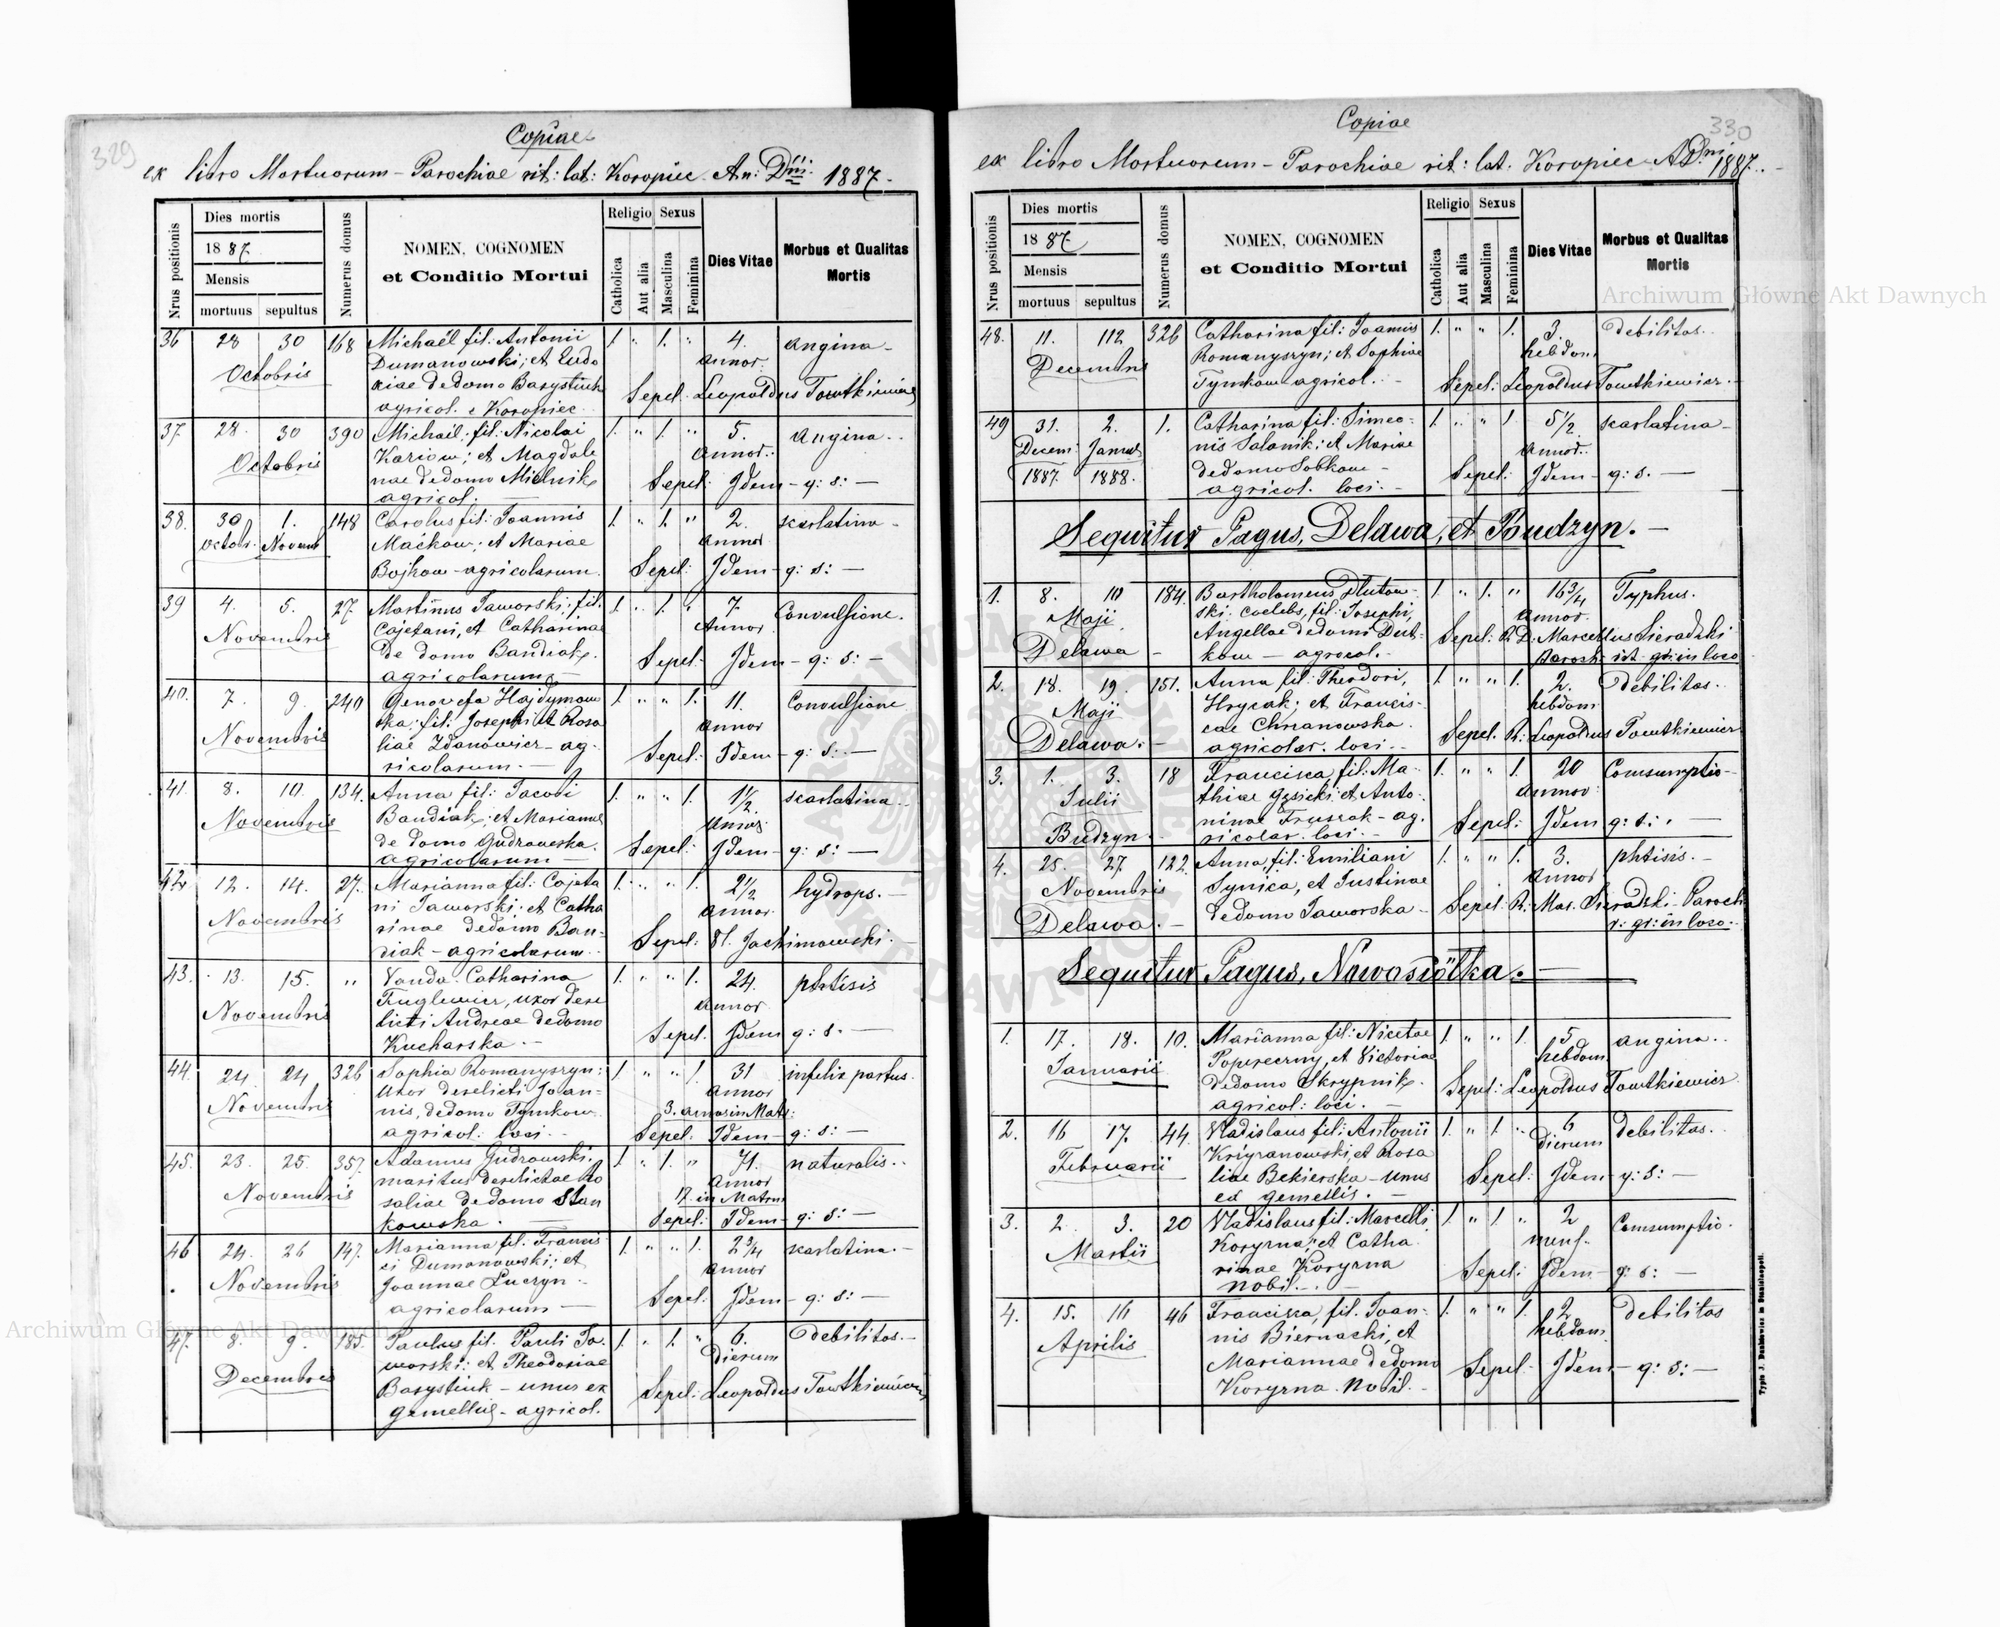 329
Copiae
ex libro Mortuorum - Parochiae rit: lat: Koropiec An: Dni: 1887.
Nrus positionis
Dies mortis
1887.
Mensis
mortuus sepultus
Numerus domus
NOMEN, COGNOMEN
et Conditio Mortui
Religio Sexus
Catholica
Aut alia
Masculina
Feminina
Dies Vitae
Morbus et Qualitas
Mortis
36 28 30 168 Michaël fil: Antonii 1. " 1. " 4. angina -
Octobris Dumanowski; et Eudo annor.
xiae de domo Barystiuk Sepel. Leopoldus Towtkiewicz
agricol. e Koropiec
37. 28. 30 390 Michaël: fil: Nicolai 1. " 1. " 5. angina..
Octobris Kariow; et Magdale annor..
nae de domo Mielnik Sepel: Idem - q: s: -
agricol: -
38. 30 1. 148 Carolus fil: Joannis 1. " 1. " 2. skarlatina -
Octob. Novem Maćkow; et Mariae annor
Bojkow - agricolarum. Sepel: Idem - q: s: -
39 4. 5. 27. Martinus Jaworski; fil. 1. " 1. " 7. Convulsione.
Novembris Cajetani, et Catharinae Annor
de domo Bandiak. Sepel: Idem - q: s: -
agricolarum -
40. 7. 9. 240 Genovefa Hajdymow 1. " " 1. 11. Convulsione
Novembris ska: fil: Josephi et Rosa annor
liae Zdanowicz - ag- Sepel: Idem - q: s: -
ricolarum. -
41. 8. 10. 134. Anna fil: Jacobi 1. " " 1. 1 1/2 skarlatina..
Novembris Bandiak; et Mariannae annor.
de domo Gudrowska. Sepel: Idem - q: s: -
agricolarum -
42 12. 14. 27. Marianna fil: Cajeta 1. " " 1. 2 1/2 hydrops. -
Novembris ni Jaworski; et Catha annor.
rinae de domo Ban- Sepel: St. Jachimowski. -
diak - agricolarum.
43. 13. 15. " Vanda Catharina 1. " " 1. 24. phtisis
Novembris uxor dere annor
licti Andreae de domo Sepel: Idem q: s. -
Kucharska. -
44. 24 24 326 Sophia Romanyszyn: 1. " " 1. 31 infelix partus.
Novembris uxor derelicti Joan- annor
nis, de domo Tymkow 3. annos in Matr:
agricol: loci. - Sepel: Idem - q: s: -
45. 23. 25. 357. Adamus Gudrowski, 1. " 1. " 71. naturalis..
Novembris maritus derelictae Ro annor
saliae de domo Stan 17. in Matrim
kowska. - Sepel: Idem - q: s: -
46 24. 26 147. Marianna fil. Francis 1. " " 1. 2 3/4 skarlatina. -
Novembris ci Dumanowski; et annor
Joannae Luczyn.
agricolarum - Sepel: Idem - q: s: -
47. 8. 9. 185. Paulus fil. Pauli Ja 1. " 1. " 6. debilitas. -
Decembris worski: et Theodosiae dierum
Barystiuk - unus ex Sepel: Leopoldus Towtkiewicz
gemellis - agricol.
330
Copiae
ex libro Mortuorum - Parochiae rit: lat: Koropiec A Dni 1887.
Nrus positionis
Dies mortis
1887
Mensis
mortuus sepultus
Numerus domus
NOMEN, COGNOMEN
et Conditio Mortui
Religio Sexus
Catholica
Aut alia
Masculina
Feminina
Dies Vitae
Morbus et Qualitas
Mortis
48. 11. 112 326 Catharina fil: Joannis 1. " " 1. 3. debilitas..
Decembris Romanyszyn; et Sophiae hebdom
Tymkow agricol. - Sepel: Leopoldus Towtkiewicz. -
49 31. 2. 1. Catharina fil: Simeo- 1. " " 1 5 1/2 skarlatina -
Decem Januar nis Salanik; et Mariae annor..
1887. 1888. de domo Sobkow - Sepel: Idem - q: s. -
agricol. loci. -
Sequitur Pagus, Delawa, et Budzyn. -
1. 8. 10 184. Bartholomeus Dlutow- 1. " 1. " 16 3/4 Typhus.
Maji ski. coelebs, fil: Josephi, annor.
Delawa - Angellae de domo Dut- Sepel: R. D: Marcellus Sieradzki
kow - agrocol. - paroch rit. gr: in loco
2. 18. 19. 151. Anna fil: Theodori, 1. " " 1. 2. debilitas..
Maji Hrycak; et Francis- hebdom
Delawa. - cae Chrzanowska. Sepel. R: Leopoldus Towtkiewicz
agricolar. loci. -
3. 1. 3. 18 Francisca, fil: Ma- 1. " " 1. 20 Comsumptio -
Julii thiae Gąsicki; et Anto- annor:
Budzyn. ninae Fruszak - ag- Sepel: Idem q: s: -
ricolar. loci. -
4. 25. 27. 122. Anna, fil: Emiliani 1. " " 1. 3. phtisis. -
Novembris Synica, et Justinae annor
Delawa. - de domo Jaworska - Sepel: R: Mar. Sieradzki - Paroch
r: gr: in loco..
Sequitur Pagus, Nowosiółka. -
1. 17. 18. 10. Marianna fil: Nicetae 1. " " 1. 5 angina..
Januarii Popereczny, et Victoriae hebdom.
de domo Skrypnik. Sepel: Leopoldus Towtkiewicz
agricol: loci. -
2. 16 17. 44. Vladislaus fil: Antonii 1. " 1. " 6 debilitas..
Februarii et Rosa dierum
liae Bekierska - unus Sepel: Idem q: s: -
ex gemellis. -
3. 2. 3. 20 Vladislaus fil: Marcelli, 1. " 1. " 2 Comsumptio.
Martii Koryzna; et Catha mens.
rinae Koryzna Sepel: Idem - q: s: -
nobil. -
4. 15. 16 46 Francisca, fil. Joan- 1. " " 1. 2 debilitas
Aprilis nis Biernacki, et hebdom.
Mariannae de domo Sepel - Idem - q: s: -
Koryzna. Nobil. -
Typis J. Dankiewicz in Stanislaopoli.
Archiwum Główne Akt Dawnych
Archiwum Główne Akt Dawnych
ARCHIWUM GŁÓWNE AKT DAWNYCH